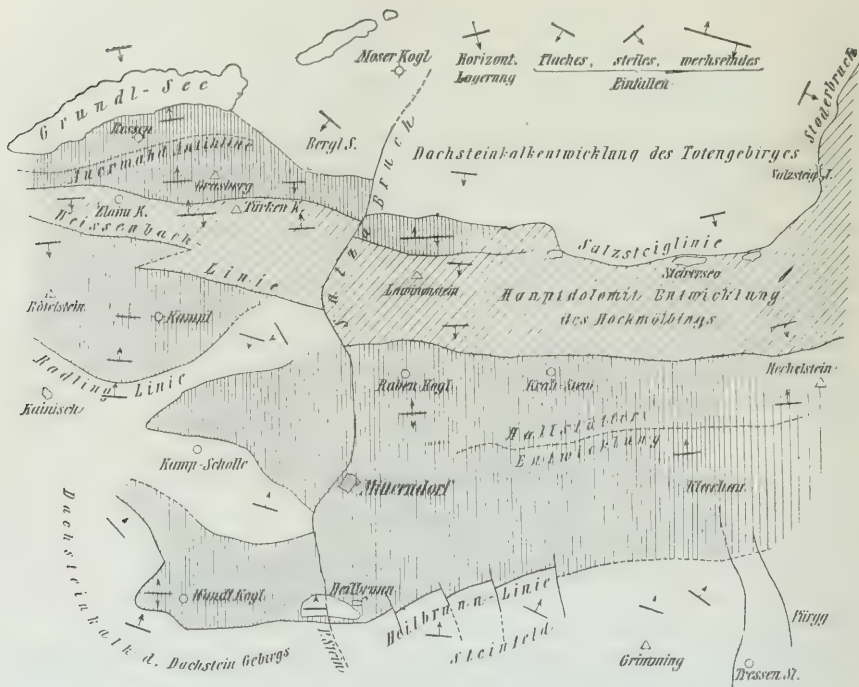 Moser Kogl
Horizont. Lagerung
flaches, steiles, wechselndes
Einfallen
Stoderbruch
Grundl-See
Ressen
Bergl S.
Salza Bruch
Dachsteinkalkentwicklung des Totengebirges
Salzsteig J.
Auermahd Antikline
Grasberg
Zlaim K.
Türken K.
Weissenbach-
Linie
Salzsteiglinie
Steirersee
Lawinenstein
Hauptdolomit Entwicklung
des Hochmölbings
Rötelstein
Kampl
Radling
Linie
Kainisch
Raben Kogl
Krah-Stein
Hechelstein
Hallstätter
Entwicklung
Kamp-Scholle
Mitterndorf
Klachau
Dachsteinkalk d. Dachstein Gebirgs
Wandl Kogl
Heilbrunn
P. Stein
Heilbrunn-Linie
Steinfeld
Grimming
Pürgg
Tressen St.